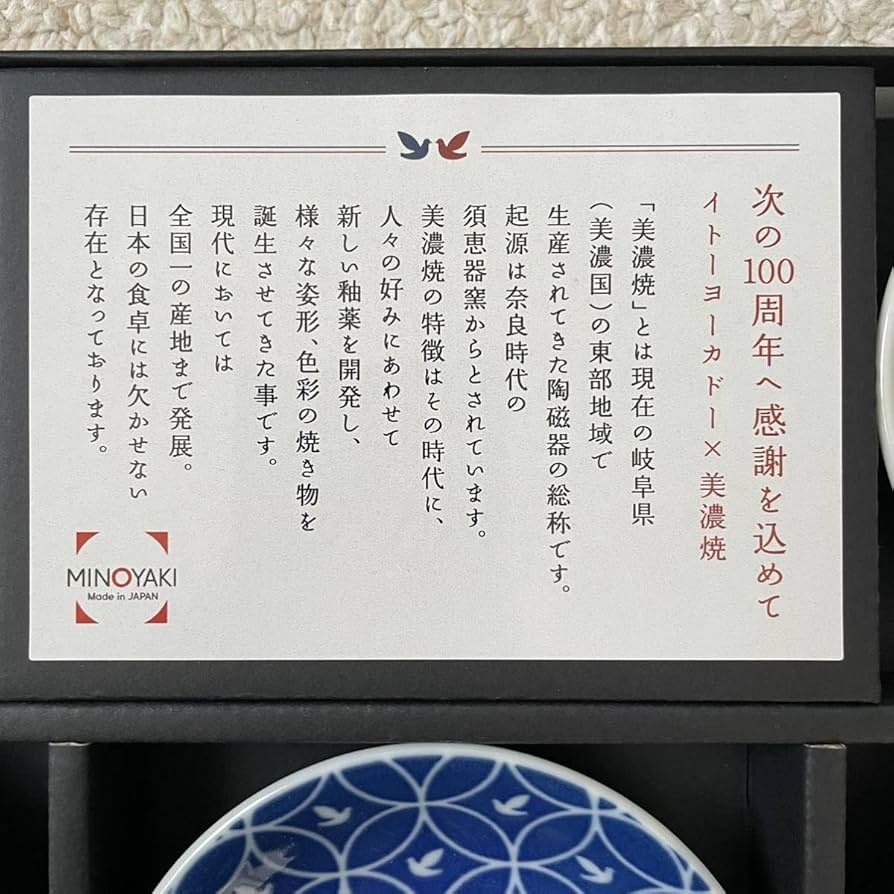 次の100周年へ感謝を込めて
イトーヨーカドー×美濃焼
「美濃焼」とは現在の岐阜県
（美濃国）の東部地域で
生産されてきた陶磁器の総称です。
起源は奈良時代の
須恵器窯からとされています。
美濃焼の特徴はその時代に、
人々の好みにあわせて
新しい釉薬を開発し、
様々な姿形、色彩の焼き物を
誕生させてきた事です。
現代においては
全国一の産地まで発展。
日本の食卓には欠かせない
存在となっております。
MINOYAKI
Made in JAPAN